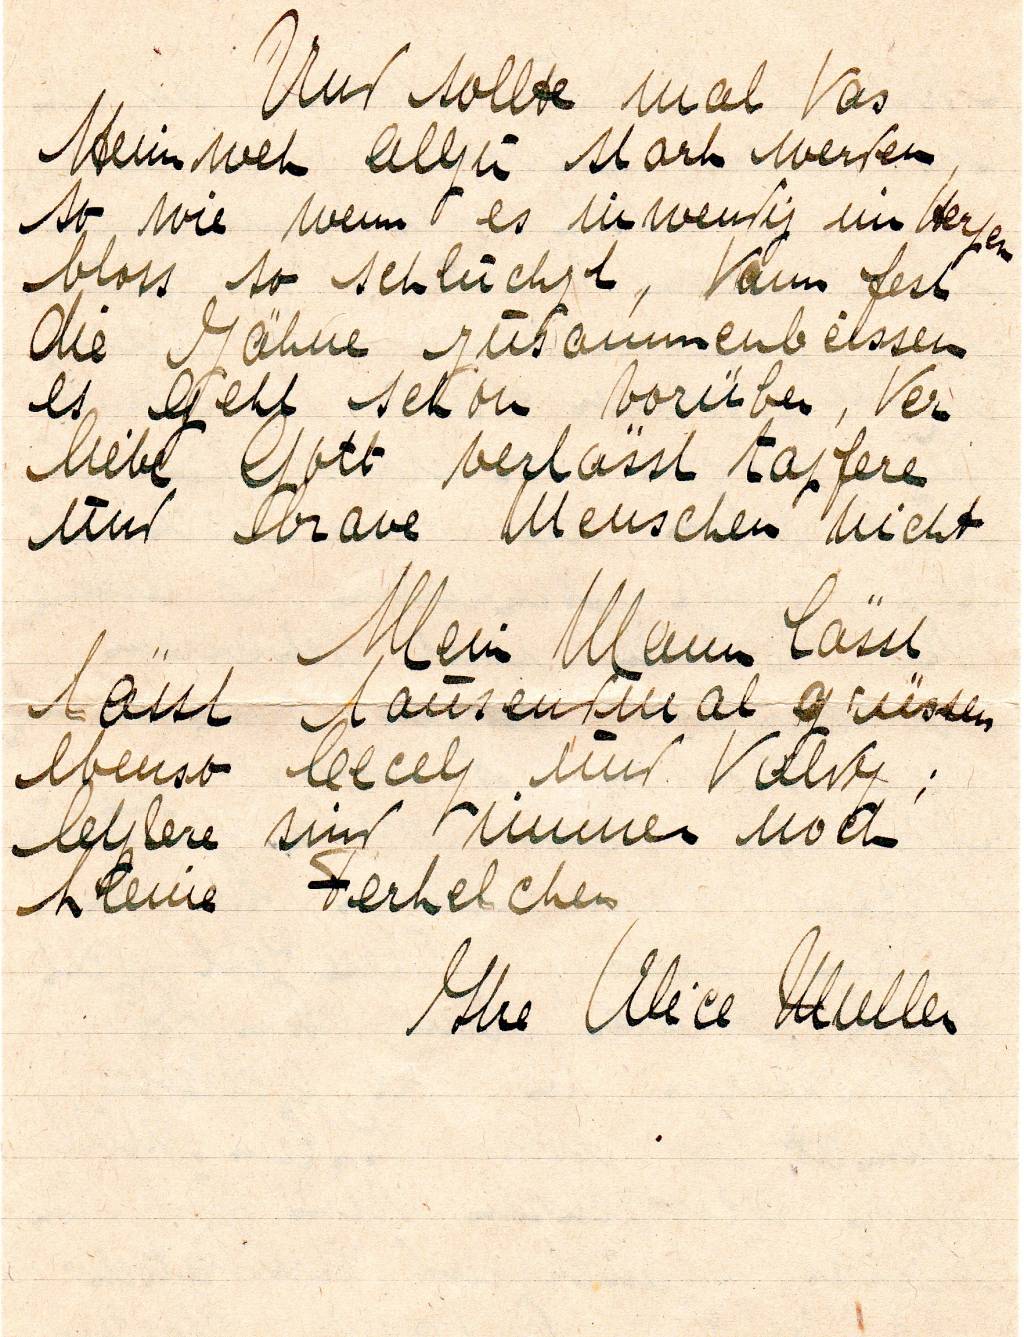 Und sollte mal das
Heimweh allzu stark werden,
so wie wenn es inwendig im Herzen
bloss so schluchzt, dann fest
die Zähne zusammenbeissen
es geht schon vorüber, der
liebe Gott verlässt tapfere
und brave Menschen nicht
Mein Mann lässt
lässt tausendmal grüssen
ebenso und ;
letztere sind immer noch
kleine Ferkelchen
Ihre Alice Muller